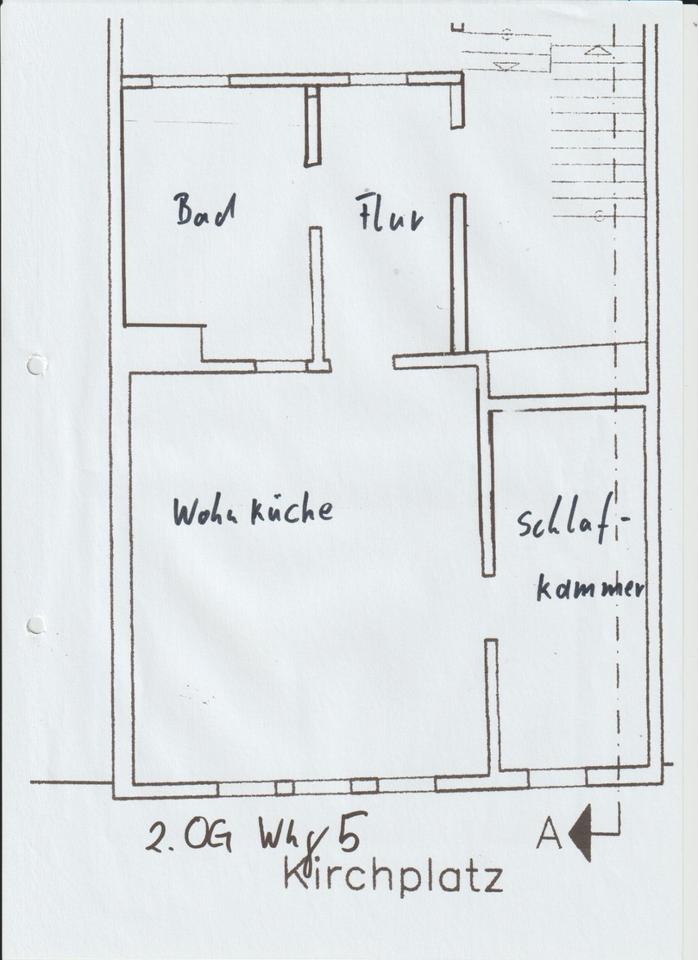 Bad
Flur
Wohnküche
Schlaf-
kammer
2. OG Whg 5
A
Kirchplatz